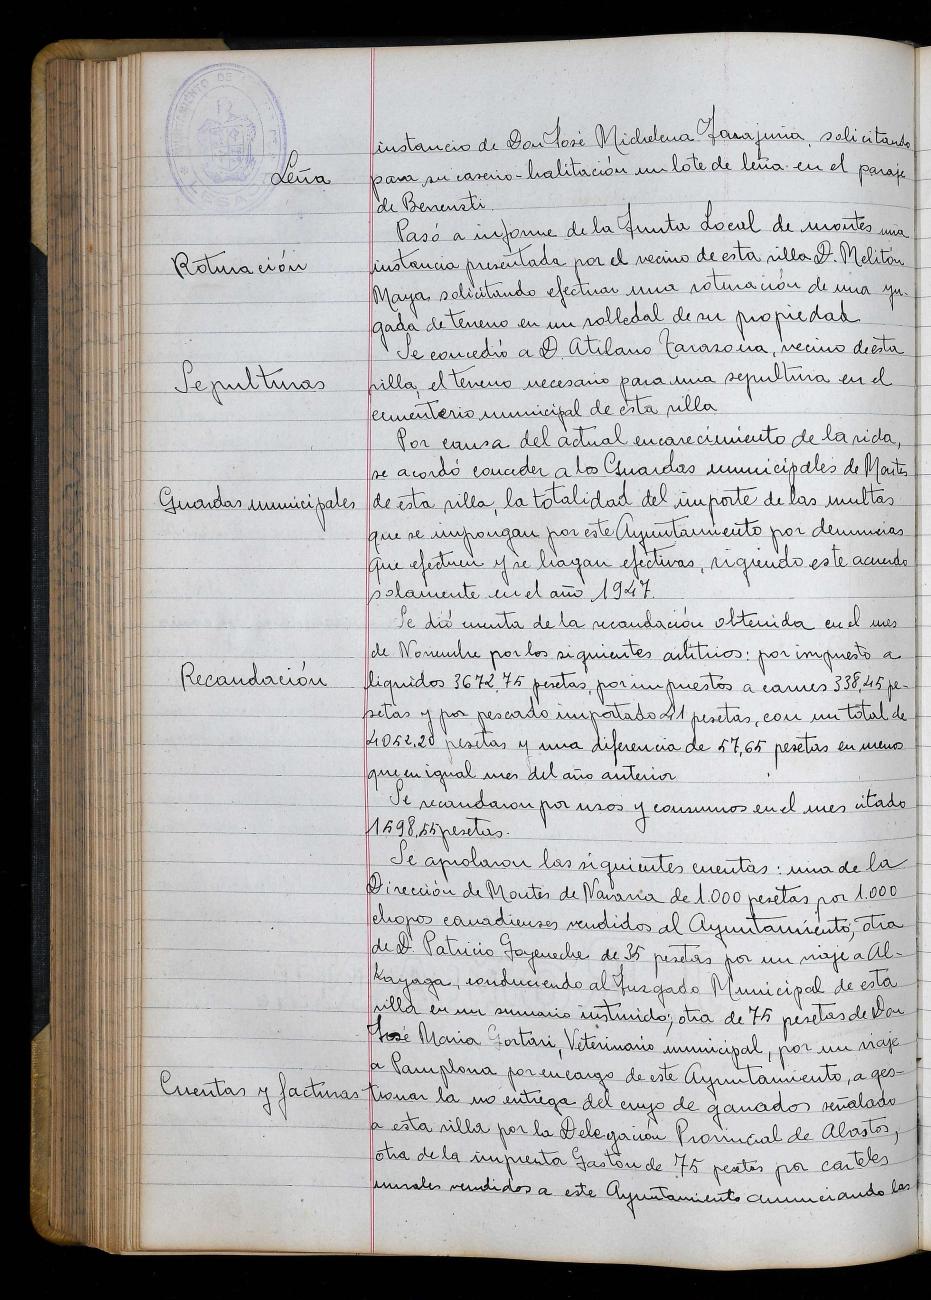 AYUNTAMIENTO DE
LESA
instancio de Don José Michelena Tarajuria solicitando
Leña
para su caserio-habitación un lote de leña en el paraje
de Berensti.
Pasó a informe de la Junta Local de montes una
Roturación
instancia presentada por el vecino de esta villa D. Melitón
Maya solicitando efectuar una roturación de una yu-
gada de terreno en un robledal de su propiedad
Se concedió a D. Atilano Tarazona, vecino de esta
Sepulturas
villa, el terreno necesario para una sepultura en el
cementerio municipal de esta villa
Por causa del actual encarecimiento de la vida,
se acordó conceder a los Guardas municipales de Montes
Guardas municipales
de esta villa, la totalidad del importe de las multas
que se impongan por este Ayuntamiento por denuncias
que efectuen y se hagan efectivas, rigiendo este acuerdo
solamente en el año 1947.
Se dió cuenta de la recaudación obtenida en el mes
de Novembre por los siguientes arbitrios: por impuesto a
Recaudación
liquidos 3672,75 pesetas, por impuestos a carnes 338,45 pe-
setas y por pescado importado 41 pesetas, con un total de
4052,20 pesetas y una diferencia de 57,65 pesetas en menos
que en igual mes del año anterior
Se recaudaron por usos y consumos en el mes citado
1598,55 pesetas.
Se aprobaron las siguientes cuentas: una de la
Dirección de Montes de Navarra de 1.000 pesetas por 1.000
chopos canadienses vendidos al Ayuntamiento; otra
de D. Patricio Goyeneche de 35 pesetas por un viaje a Al-
kayaga, conduciendo al Juzgado Municipal de esta
villa en un sumario instruido; otra de 75 pesetas de Don
José Maria Gortari, Veterinario municipal, por un viaje
a Pamplona por encargo de este Ayuntamiento, a ges-
Cuentas y facturas
tionar la no entrega del cupo de ganados señalado
a esta villa por la Delegación Provincial de Abastos,
otra de la imprenta Gastón de 75 pesetas por carteles
murales vendidos a este Ayuntamiento anunciando las